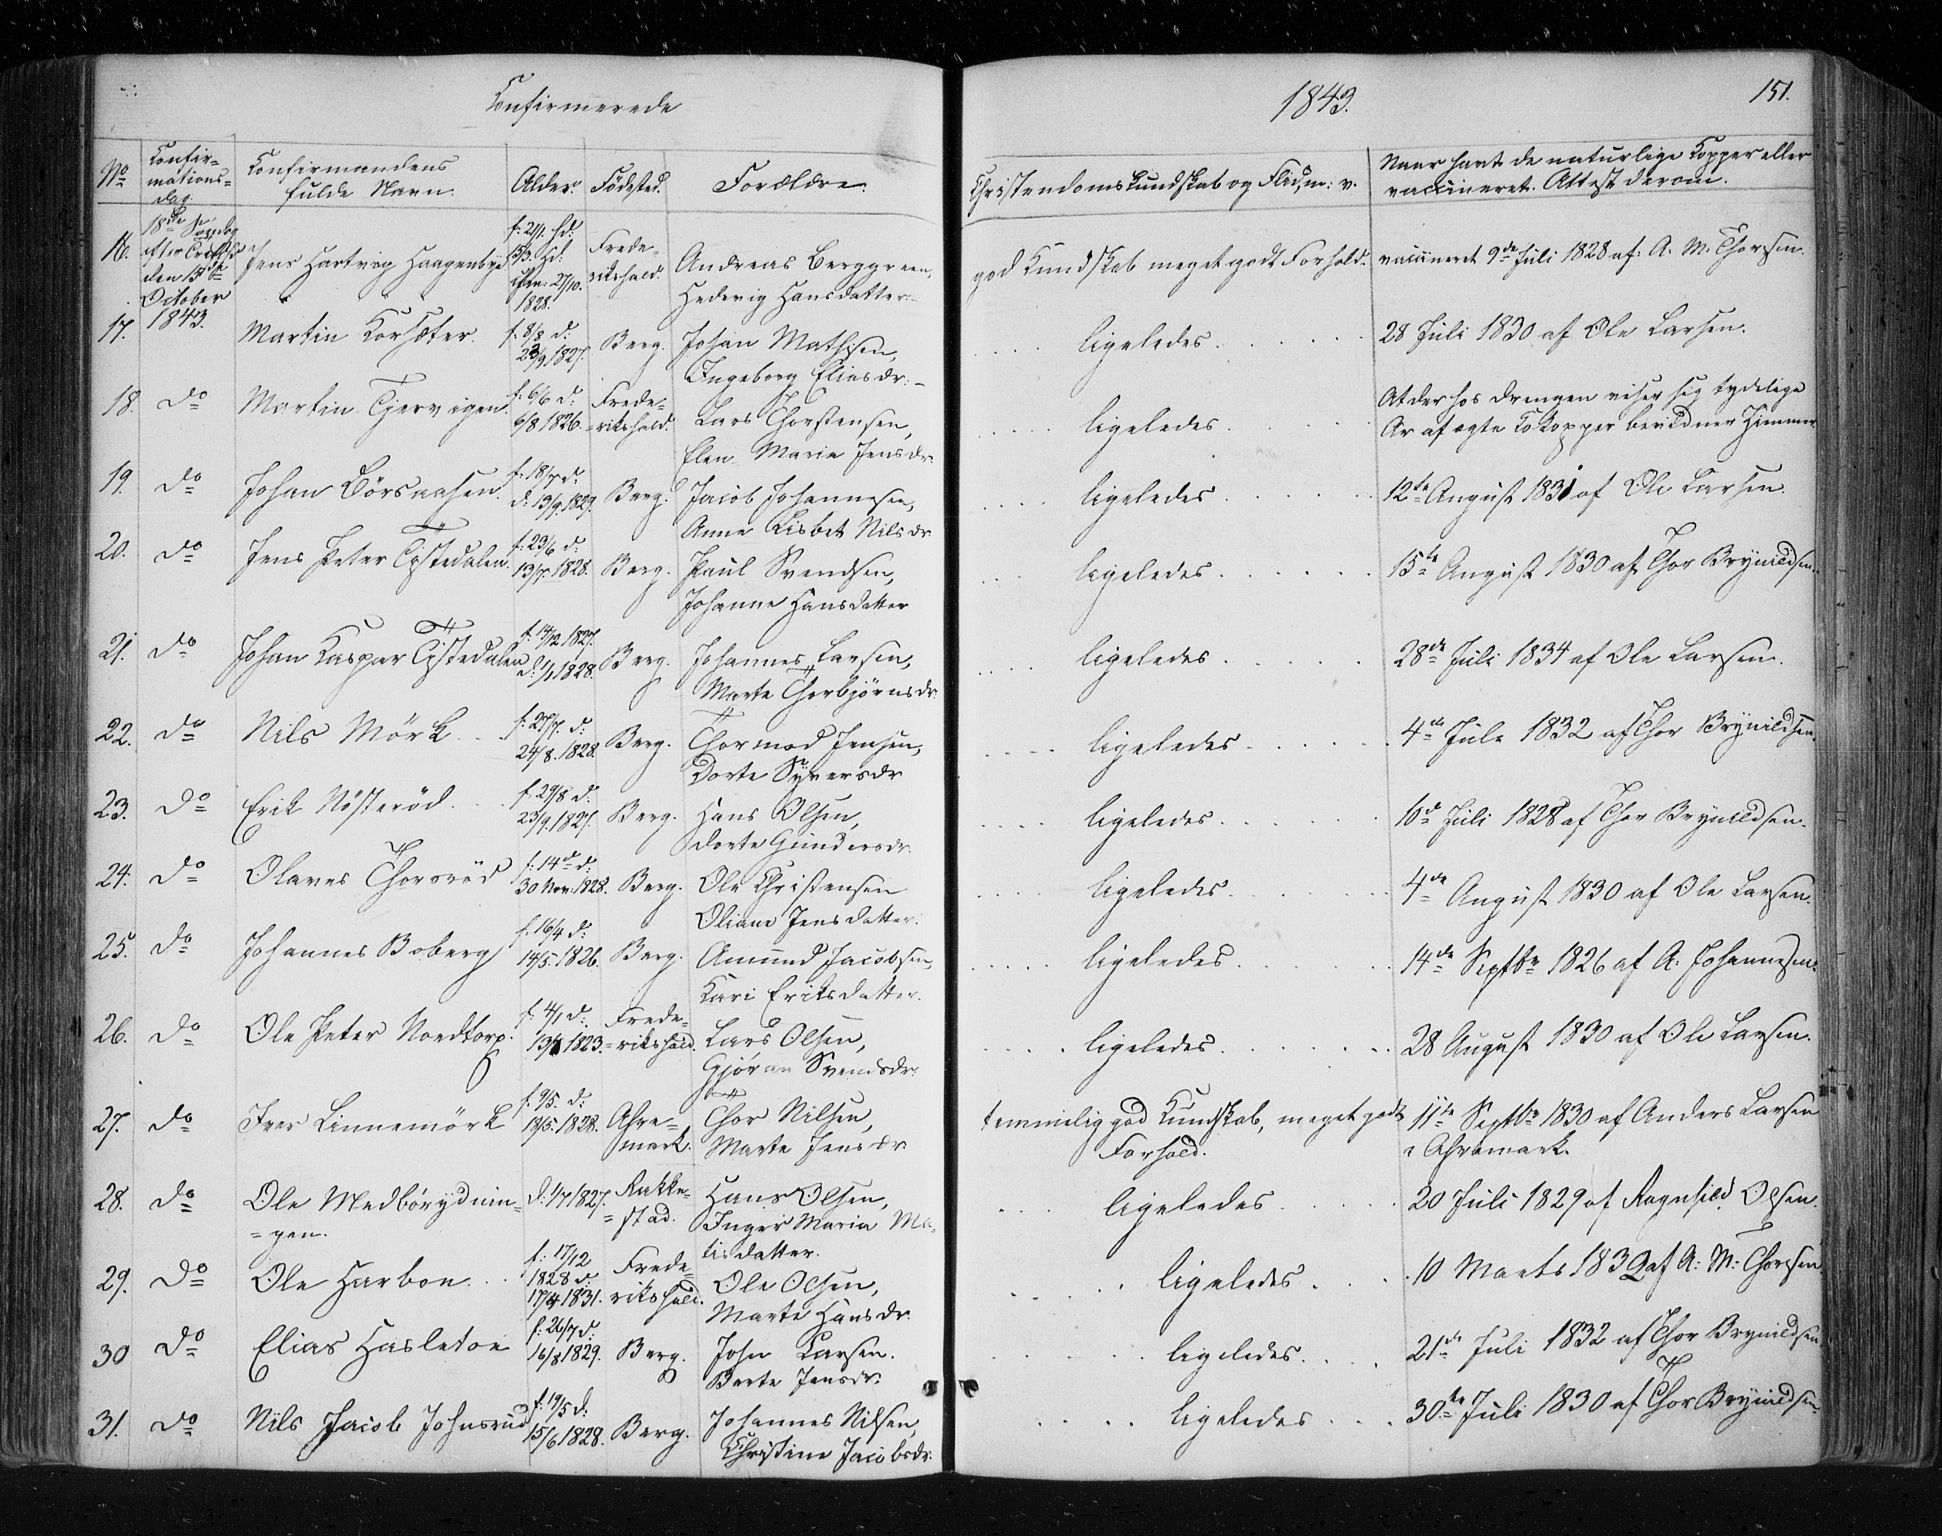 Confirmerede
1843.
151.
No
Confir=
mations=
dag.
Confirmandens
fulde Navn.
Alder.
Fødested.
Forældre.
Christendomskundskab og Flid, m: v.
Naar havt de naturlige Kopper eller
vaccineret. Attest derom.
16.
18de Søndag
efter
den 15de
October
1843.
Jens Hartvig Haagenbye
f: 2/1. hd:
13/3. Kd:
27/10.
1828.
Frede=
rikshald.
Andreas Berggreen,
Hedevig Hansdatter.
god Kundskab meget godt Forhold.
vacineret 9de Juli 1828 af: A. M. Thorsen.
17.
Martin Korsæter.
f: 8/8 d:
23/9 1827.
Berg.
Johan Mathisen,
Ingeborg Eliasdr.
ligeledes
28 Juli 1830 af Ole Larsen.
18.
do
Martin Tjervigen.
f: 6/6 d:
6/8 1826.
Frede=
=rikshald.
Lars Thorstensen,
Elen Maria Jensdr.
ligeledes
At der hos Drengen viser sig tydelige
Ar af ægte Kokopper bevidner Zimmer
19.
do
Johan Börsaasen.
f: 18/7 d:
d: 13/9. 1829.
Berg.
Jacob Johannesen,
Anne Lisbet Nilsdr
ligeledes
12te August 1831 af Ole Larsen.
20.
do
Jens Peter Tistedalen.
f: 23/6 d:
13/7. 1828.
Berg.
Paul Svendsen,
Johanne Hansdatter
ligeledes
15te August 1830 af Thor Brynildsen.
21.
do
Johan Kaspar Tistedalen
f: 14/12 1827.
d: 1/1 1828.
Berg.
Johannes Larsen,
Marte Thorbjørnsdr.
ligeledes
28de Juli 1834 af Ole Larsen.
22.
do
Nils Mörk
f: 27/7. d:
24/8. 1828.
Berg.
Thormod Jensen,
Dorte Syversdr
ligeledes
4de Juli 1832 af Thor Brynildsen.
23.
do
Erik Nösteröd.
f: 29/8 d:
23/9. 1827.
Berg.
Hans Olsen,
Dorte Gundersdr.
ligeledes
10de Juli 1828 af Thor Brynildsen.
24.
do
Olaves Thorsröd
f: 14de d:
30 Nov. 1828.
Berg.
Ole Christensen
Oliane Jensdatter.
ligeledes
4de August 1830 af Ole Larsen.
25.
do
Johannes Boberg
f: 16/4 d:
14/5. 1826.
Berg.
Amund Jacobsen,
Kari Eriksdatter.
ligeledes
14de Septbr 1826 af A. Johannesen.
26.
do
Ole Peter Nordtorp.
f: 4/1 d:
13/4 1823.
Frede=
=rikshald.
Lars Olsen,
Gjöran Svendsdr.
ligeledes
28 August 1830 af Ole Larsen.
27.
do
Iver Linnemörk
f: 9/5. d:
18/5. 1828.
Ahre=
mark.
Thor Nilsen,
Marte Jensdr
temmelig god Kundskab, meget godt
Forhold.
11te Septbr 1830 af Anders Larsen
i Ahremark.
28.
do
Ole Medböxydnin=
=gen.
d: 1/7 1827.
Rakke=
=stad.
Hans Olsen,
Inger Maria Ma=
tisdatter.
ligeledes
20 Juli 1829 af Ragnhild Olsen.
29.
do
Ole Harbon
f: 17/12
1828 d:
17/4 1831.
Frede=
rikshald.
Ole Olsen,
Marte Hansdr.
ligeledes
10 Marts 1832 af A: M: Thorsen
30
do
Elias Hasletoe
f: 26/7 d:
16/8 1829.
Berg.
John Larsen.
Berte Jensdr.
ligeledes
21de Juli 1832 af Thor Brynildsen
31.
do
Nils Jacob Johnsrud
f: 19/5 d:
15/6 1828.
Berg.
Johannes Nilsen,
Christine Jacobsdr.
ligeledes
30te Juli 1830 af Thor Brynildsen.